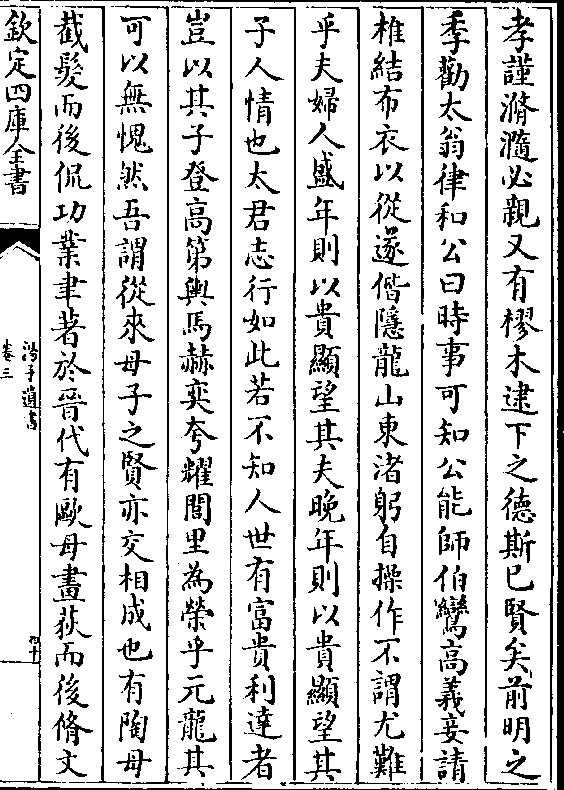 孝謹滫瀡必親又有樛木逮下之德斯已賢矣前明之
季勸太翁律和公曰時事可知公能師伯鸞高義妾請
椎結布衣以從遂偕隱龍山東渚躬自操作不謂尤難
乎夫婦人盛年則以貴顯望其夫晚年則以貴顯望其
子人情也太君志行如此若不知人世有富貴利達者
豈以其子登高第輿馬赫奕夸耀閭里為榮乎元龍其
可以無愧然吾謂從來母子之賢亦交相成也有陶母
截髮而後侃功業聿著於晉代有歐母畫荻而後脩文
欽定四庫全書
卷三